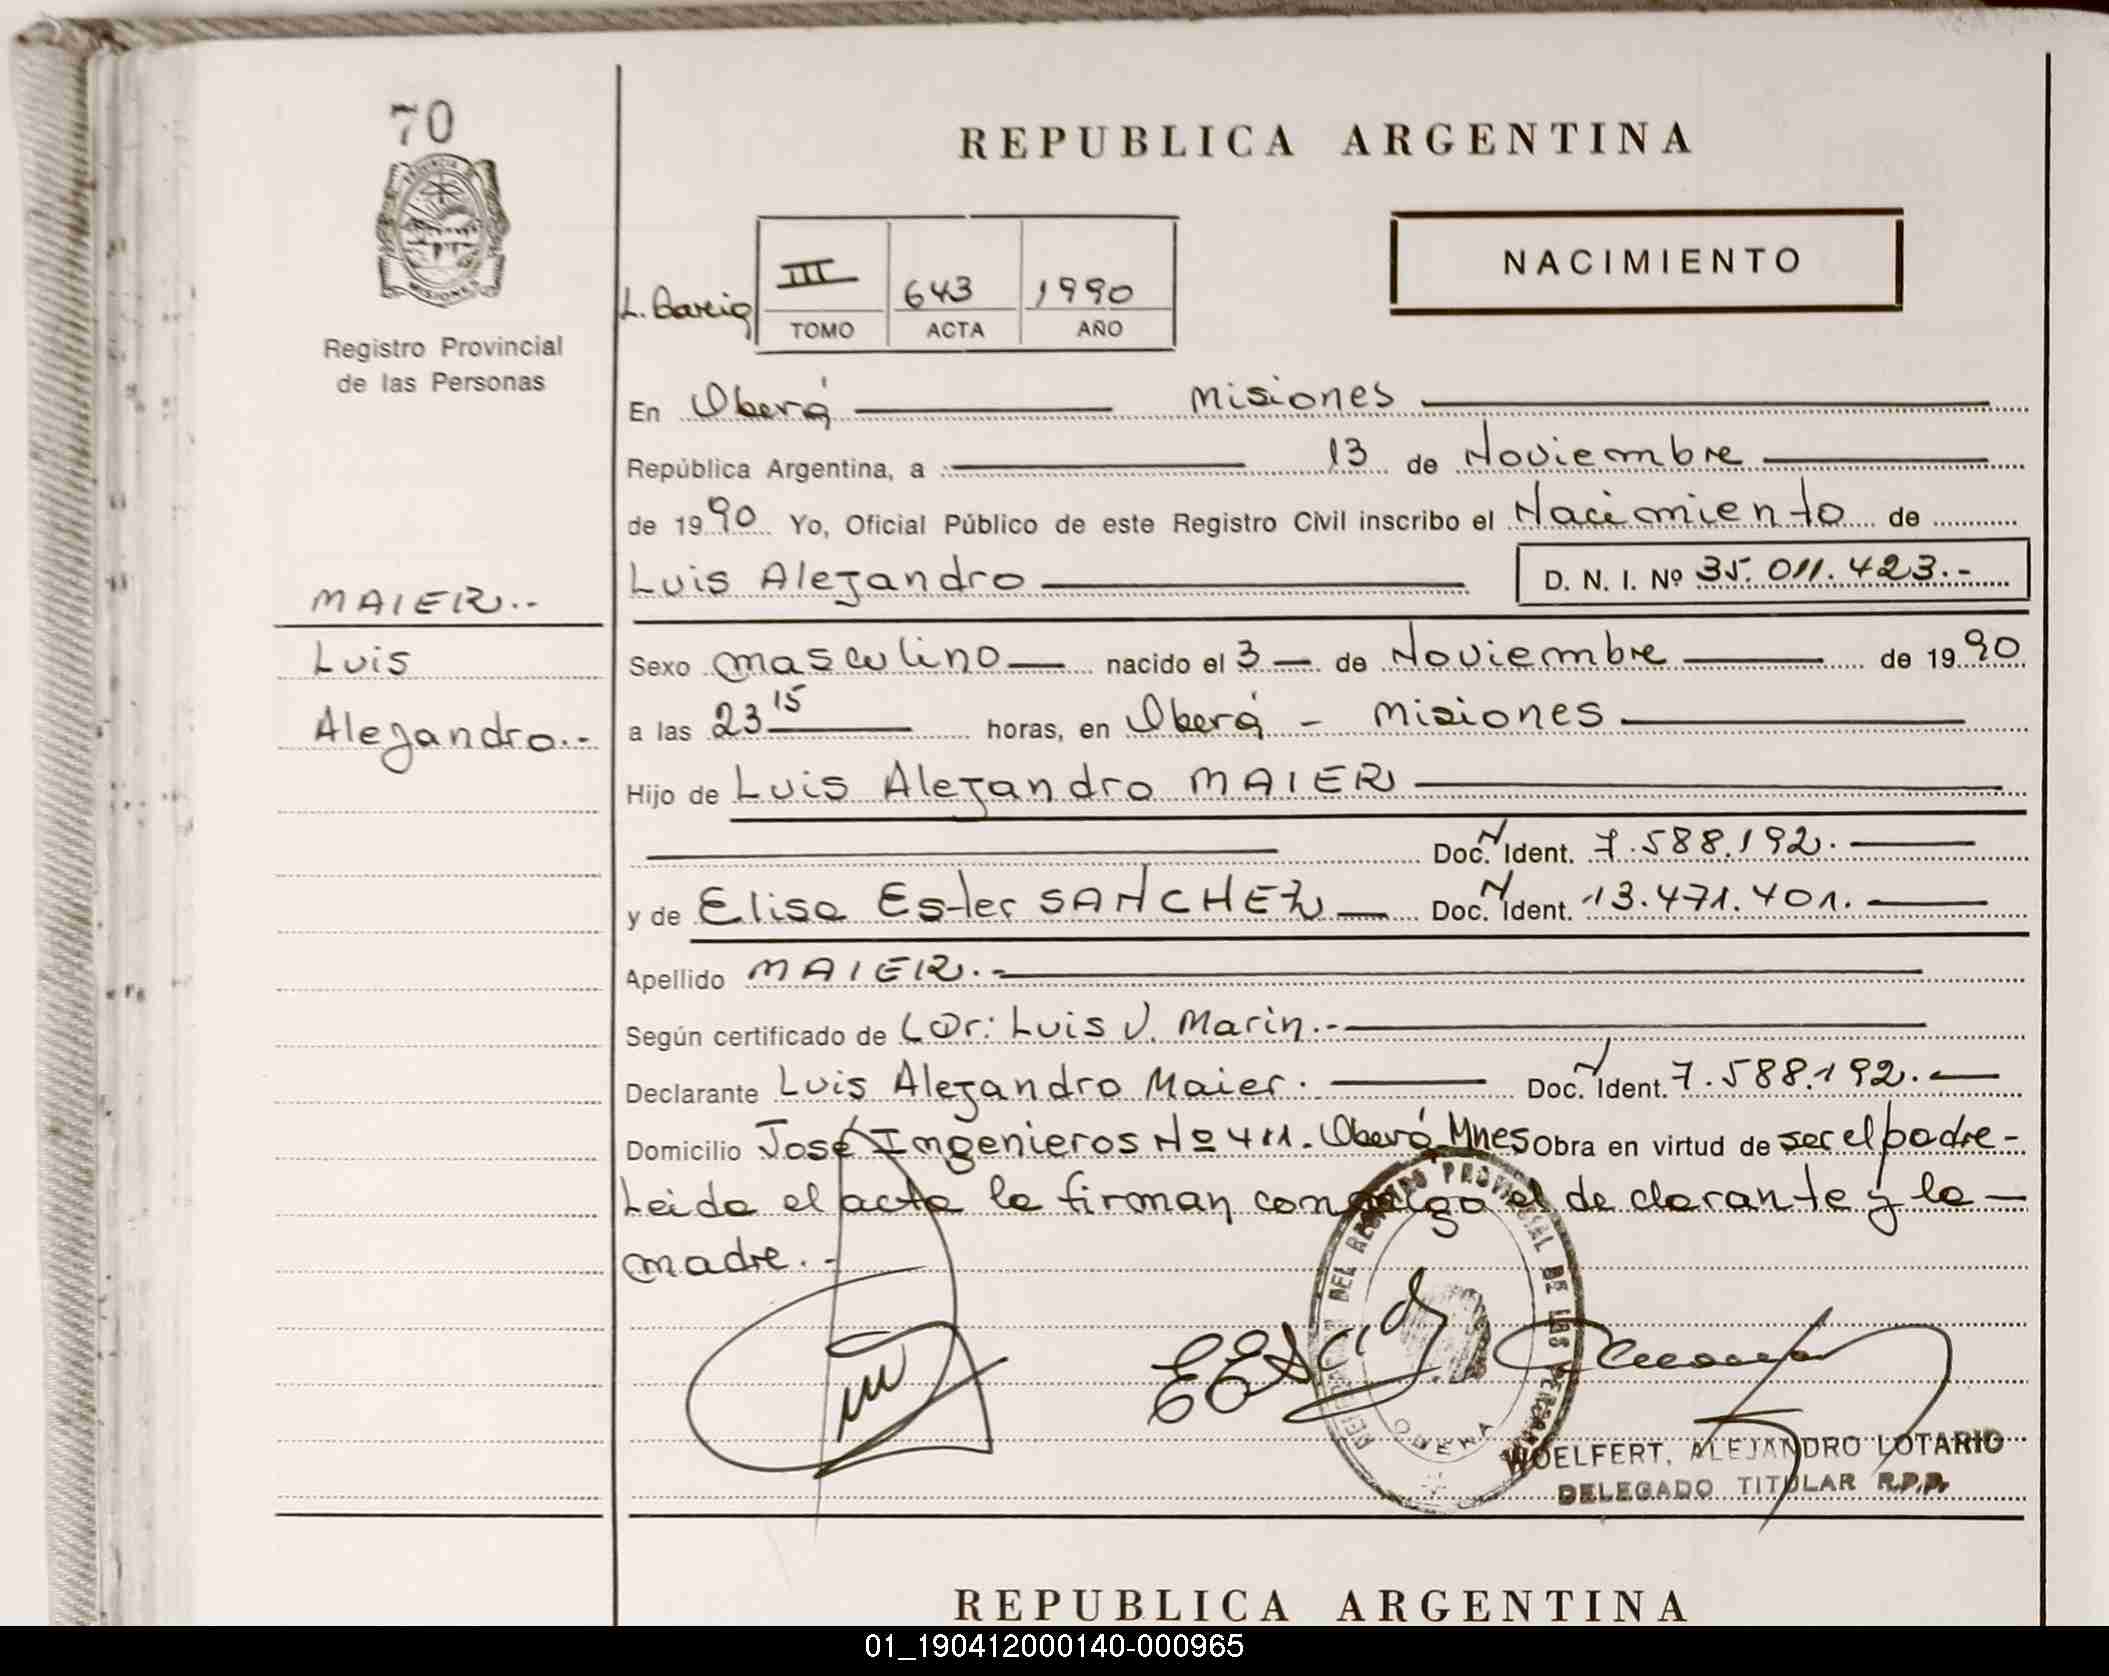 70
PROVINCIA DE
MISIONES
Registro Provincial
de las Personas
REPUBLICA ARGENTINA
NACIMIENTO
III 643 1990
TOMO ACTA AÑO
En Oberá Misiones
República Argentina, a 13 de Noviembre
de 1990 Yo, Oficial Público de este Registro Civil inscribo el Nacimiento de
Luis Alejandro D. N. I. Nº 35.011.423.-
MAIER.-
Luis
Alejandro.-
Sexo masculino nacido el 3 de Noviembre de 1990
a las 23 15 horas, en Oberá - Misiones
Hijo de Luis Alejandro MAIER
Doc. N Ident. 7.588.192.
y de Elisa Ester SANCHEZ Doc. N Ident. 13.471.401.
Apellido MAIER.-
Según certificado de Dr: Luis V. Marin.-
Declarante Luis Alejandro Maier. Doc. N Ident. 7.588.192.
Domicilio José Ingenieros Nº 411. Oberá Mnes Obra en virtud de ser el padre-
Leida el acta la firman conmigo el declarante y la
madre.-
DEL REGISTRO PROVINCIAL DE LAS PERSONAS
OBERA
WOELFERT, ALEJANDRO LOTARIO
DELEGADO TITULAR R.P.P.
REPUBLICA ARGENTINA
01_190412000140-000965